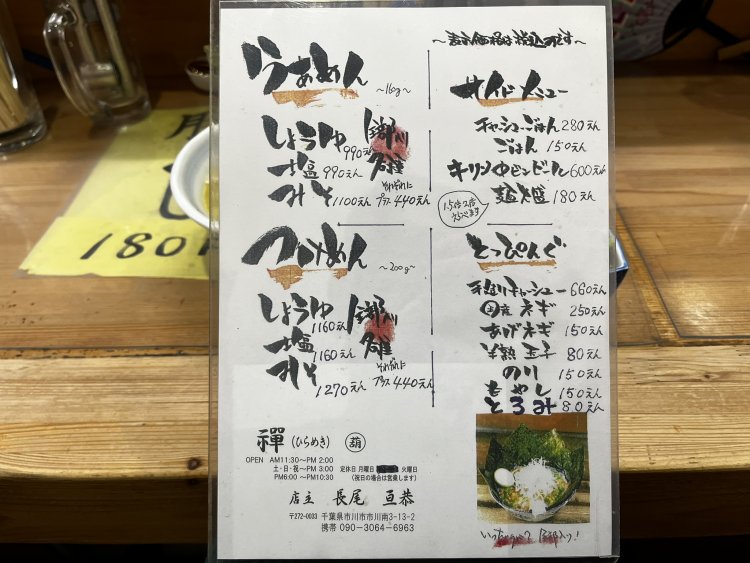 ～表示価格は税込みです～
らぁめん ～160g～
しょうゆ 990えん
塩 990えん
みそ 1100えん
それぞれに
プラス440えん
つけめん ～200g～
しょうゆ 1160えん
塩 1160えん
みそ 1270えん
それぞれに
プラス440えん
サイドメニュー
チャーシューごはん 280えん
ごはん 150えん
キリン中ビンビール 600えん
麺大盛 180えん
とっぴんぐ
チャーシュー 660えん
国産ネギ 250えん
あげネギ 150えん
半熟玉子 80えん
のり 150えん
もやし 150えん
とろみ 80えん
禪 (ひらめき)
OPEN AM11:30〜PM 2:00
土・日・祝〜PM 3:00 定休日 月曜日 火曜日
PM6:00 〜PM10:30 (祝日の場合は営業します)
店主 長尾 亘恭
〒272-0033 千葉県市川市市川南3-13-2
携帯 090-3064-6963
180